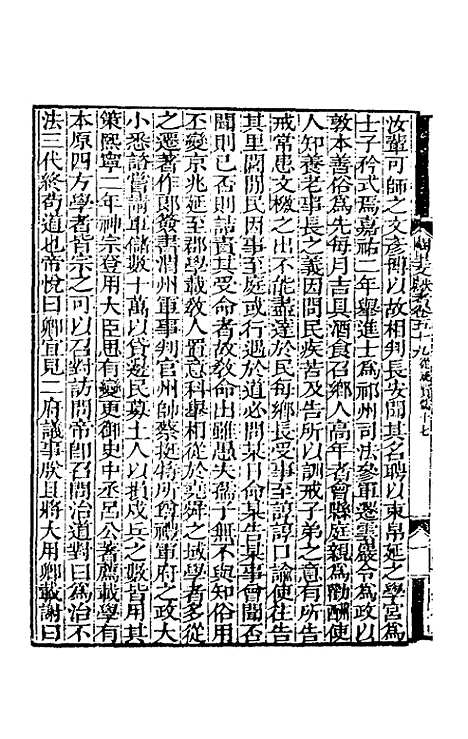 汝輩可師之文彥博以故相判長安聞其名聘以束帛延之學宮爲
士子矜式焉嘉祐二年舉進士爲祁州司法參軍遷雲巖令爲政以
敦本善俗爲先每月吉具酒食召鄉人高年者會縣庭親爲勸酬使
人知養老事長之義因問民疾苦及告所以訓戒子弟之意有所告
戒常患文檄之出不能盡達於民每鄉長受事至諄諄口諭使往告
其里閭間民因事至庭或行遇於道必問某日命某告某事曾聞否
聞則已否則詰責其受命者故教命出雖愚夫孺子無不與知俗用
丕變京兆延至郡學載敎人置意科舉相從於堯舜之域學者多從
之遷著作郞簽書渭州軍事判官州帥蔡挺特所尊禮軍府之政大
小悉諮嘗請軍儲數十萬以貸邊民募土人以損戍兵之數皆用其
策熙寧二年神宗登用大臣思有變更御史中丞呂公著薦載學有
本原四方學者皆宗之可以召對訪問帝卽召問治道對曰爲治不
法三代終苟道也帝悅曰卿宜見二府議事朕且將大用卿載謝曰